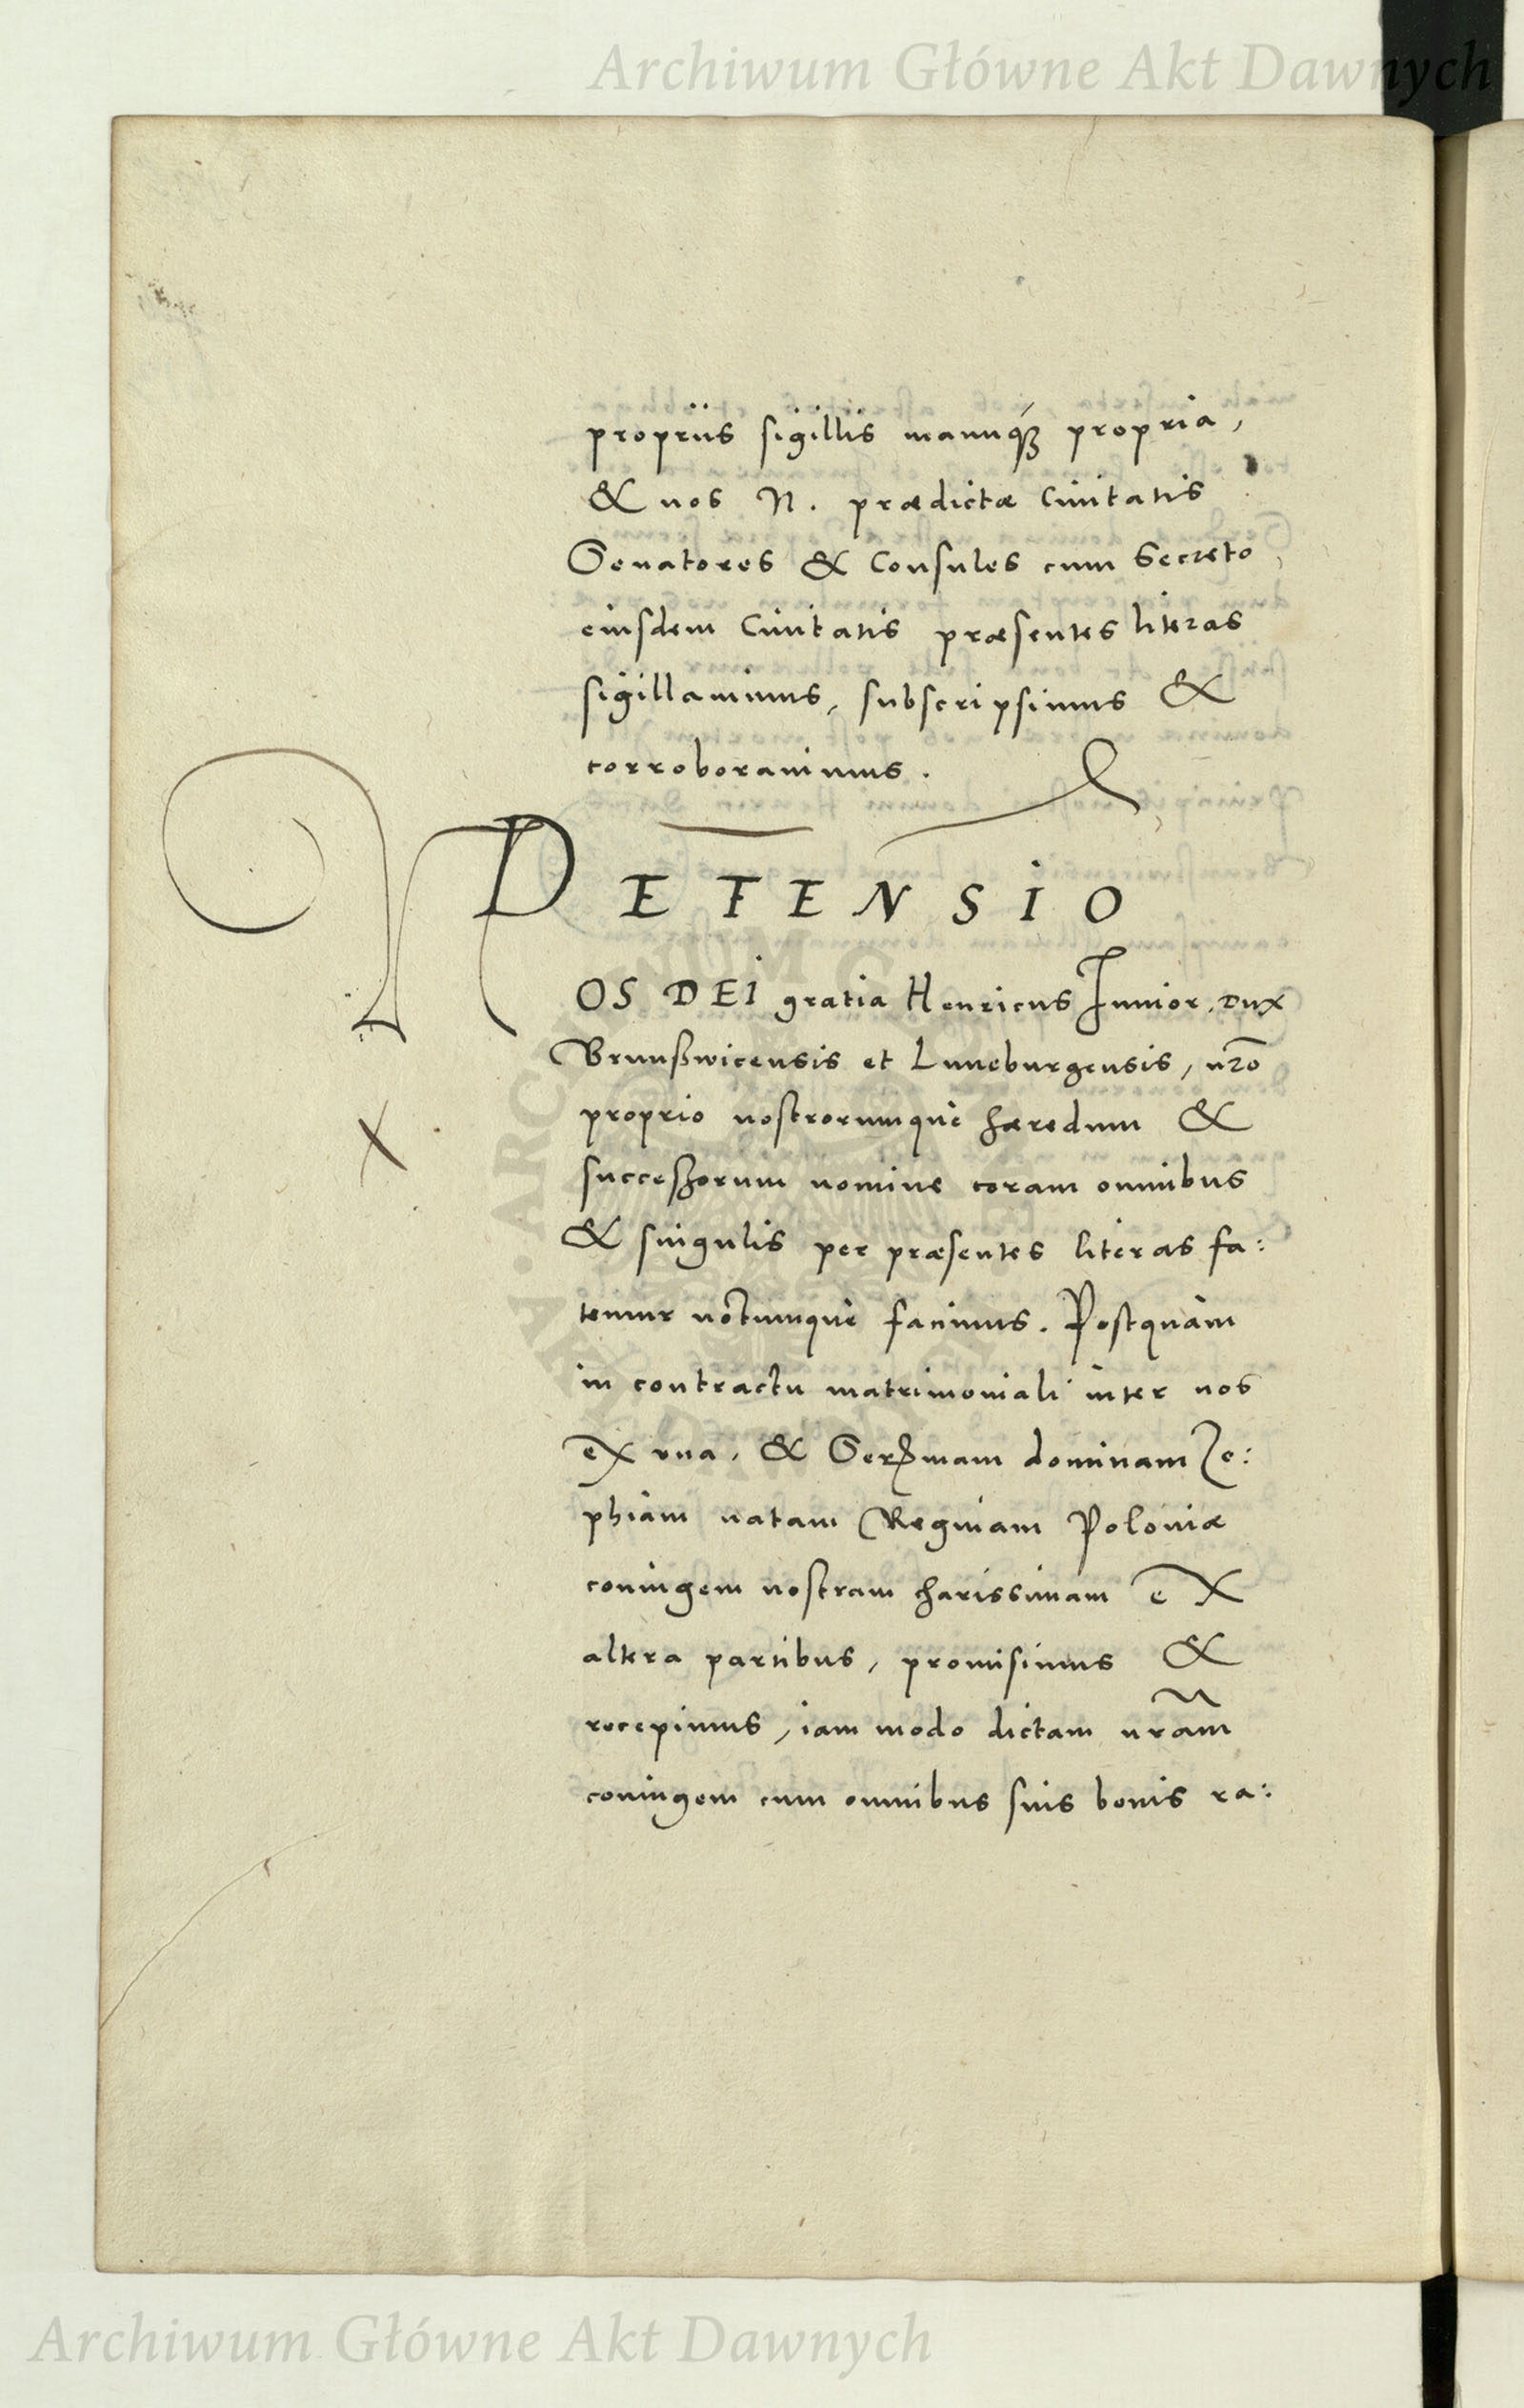 Archiwum Główne Akt Dawnych
propriis sigillis manuq́ꝫ propria,
& nos N. prædictæ Ciuitatis
Senatores & Consules cum Secreto
eiusdem Ciuitatis præsentes literas
sigillauimus, subscripsimus &
corroborauimus.
DEFENSIO
NOS DEI gratia Henricus Iunior, Dux
Brunßwicensis et Luneburgensis, nr̃o
proprio nostrorumque hæredum &
succeßorum nomine coram omnibus
& singulis per præsentes literas fa:
temur notumque facimus. Postquam
in contractu matrimoniali inter nos
ex vna, & Ser
dominam Zo:
phiam natam Reginam Poloniæ
coniugem nostram charissimam ex
altera partibus, promisimus &
recepimus, iam modo dictam nr̃am
coniugem cum omnibus suis bonis ra:
X
ARCHIWUM GŁÓWNE AKT DAWNYCH
Archiwum Główne Akt Dawnych